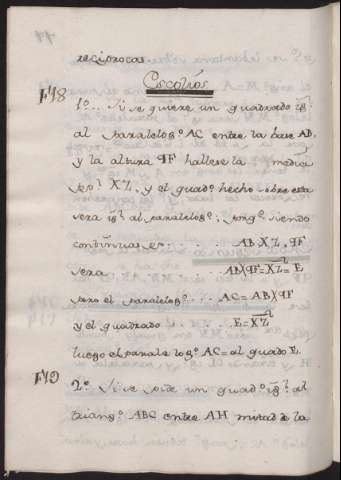 reciprocas.
Escolios
F48
1º.. Si se quiere un quadrado ig.l
al paralelog.º AC entre la base AD,
y la altura PF hallese la media
XZ, y el quad.º hecho sobre esta
sera ig.l al paralelog.º; porq.e siendo
continuas . . . . AB, XZ, PF
sera . . . . AB X PF = XZ² = E
pero el paralelog.º . . . AC = AB X PF
y el quadrado . . . . E = XZ²
luego el paralelog.º AC = al quado E.
F49
2º.. Si se pide un quad.º ig.l al
triang.º ABC entre AH mitad de la